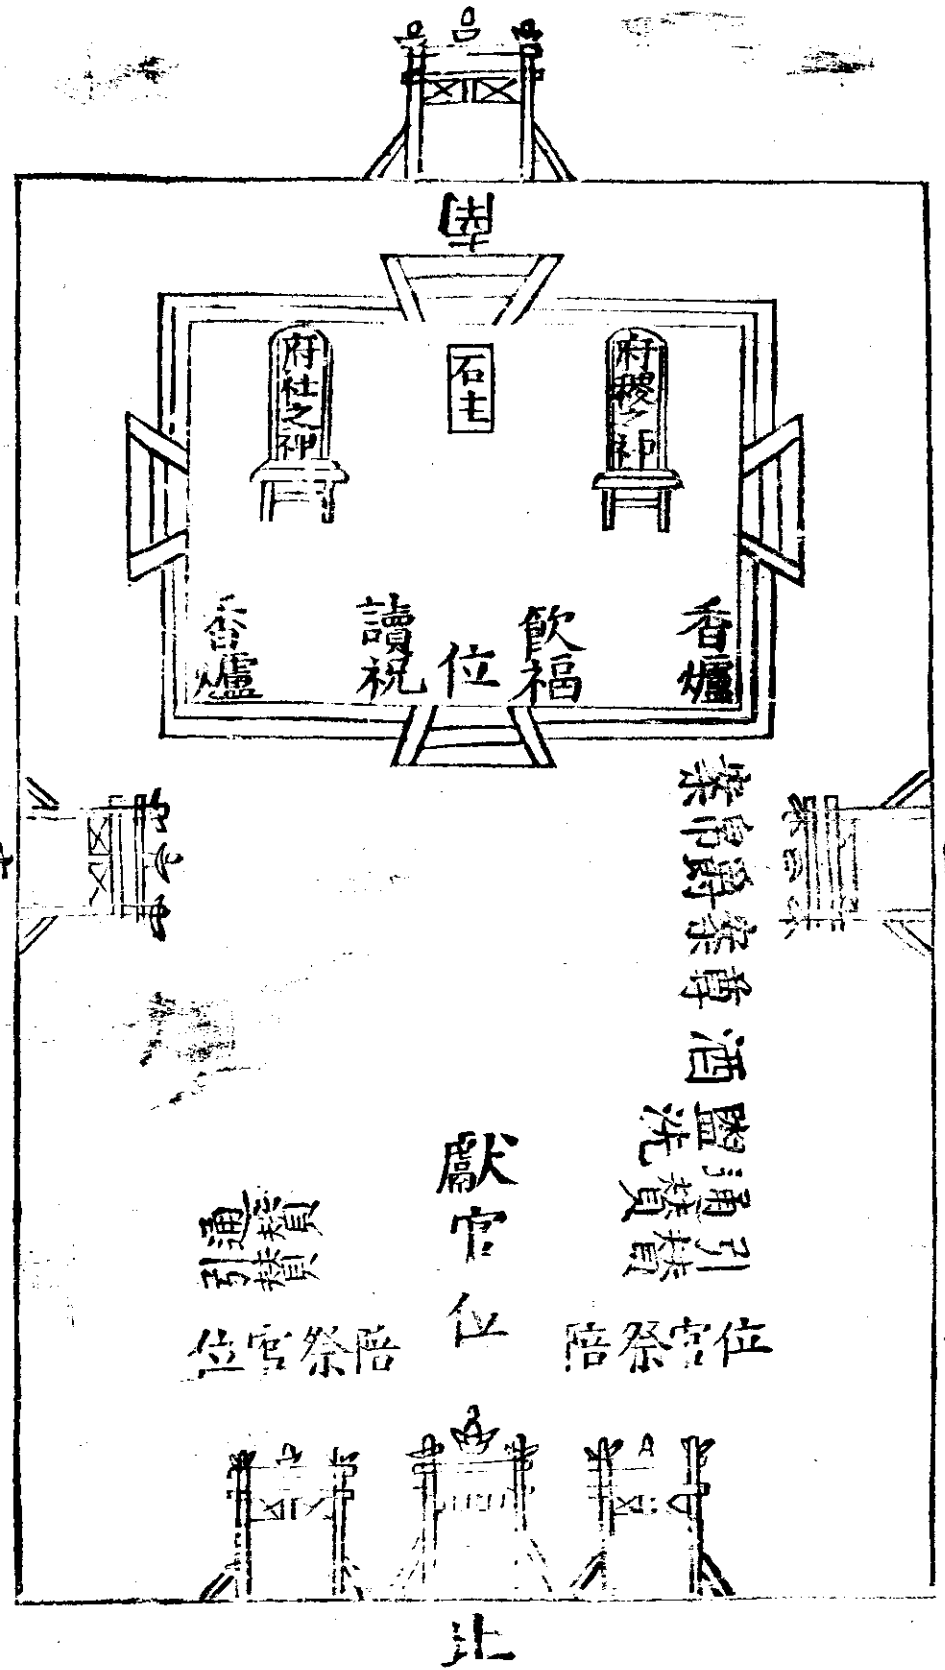 府社之神
石主
府稷之神
香爐
讀祝
位
飲福
香爐
案帛爵案尊酒
盥洗
通贊
引贊
通贊
引贊
獻官位
陪祭官位
陪祭官位
北